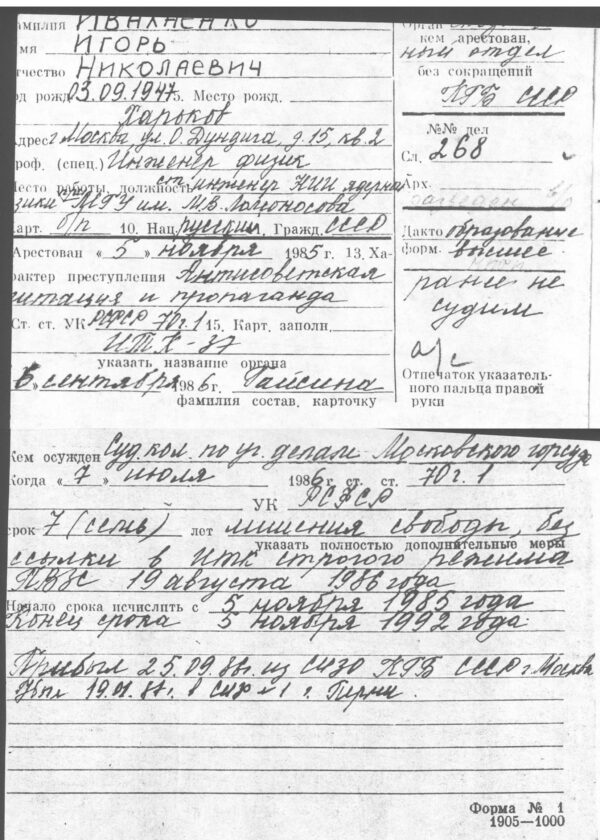 амилия ИВАХНЕНКО
мя ИГОРЬ
тчество НИКОЛАЕВИЧ
од рожд. 03.09.1947г. Место рожд.
Харьков
Адрес г Москва ул. О. Дундича, д. 15, кв. 2
роф. (спец.) Инженер физик
есто работы, должность ст. инженер НИИ ядерной
зики МГУ им. М.В. Ломоносова
Карт. б/п 10. Нац. русский. Гражд. СССР
Арестован « 5 » ноября 1985 г. 13. Ха-
рактер преступления Антисоветская
гитация и пропаганда
Ст. ст. УК РСФСР 70 г. 1 15. Карт. заполн.
ИТК-37
указать название органа
сентября 1986 г. Гайсина
фамилия состав. карточку
Орган
кем арестован,
ный отдел
без сокращений
КГБ СССР
№№ дел
Сл. 268
Арх.
Дакто образование
форм. высшее
ранее не
судим
а/с
Отпечаток указатель-
ного пальца правой
руки
Кем осужден Суд. кол. по уг. делам Московского горсуда
Когда « 7 » июля 1986 г. ст. ст. 70 г. 1
УК РСФСР
срок 7 (семь) лет лишения свободы, без
указать полностью дополнительные меры
ссылки в ИТК строгого режима
19 августа 1986 года
Начало срока исчислить с 5 ноября 1985 года
Конец срока 5 ноября 1992 года.
Прибыл 25.09.86г. из СИЗО КГБ СССР г. Москва
19.01.87г. в СИЗО-1 г. Перми.
Форма № 1
1905—1000